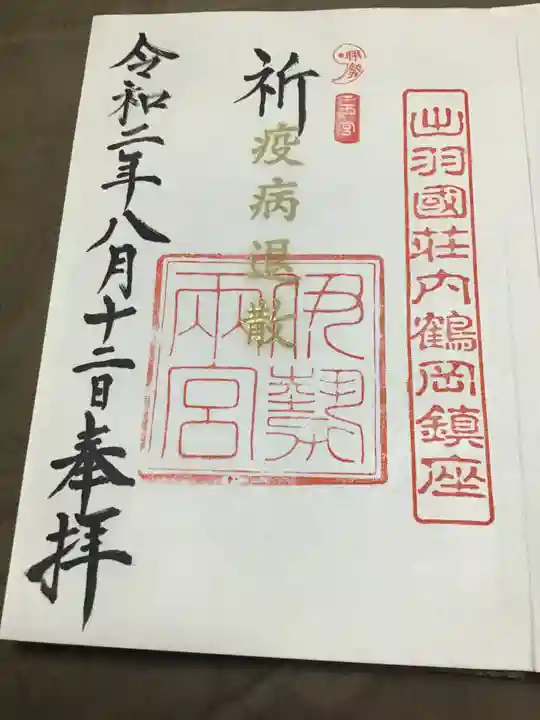 出羽國荘内鶴岡鎮座
伊勢
両宮
祈
疫病退散
伊勢
両宮
令和二年八月十二日奉拝